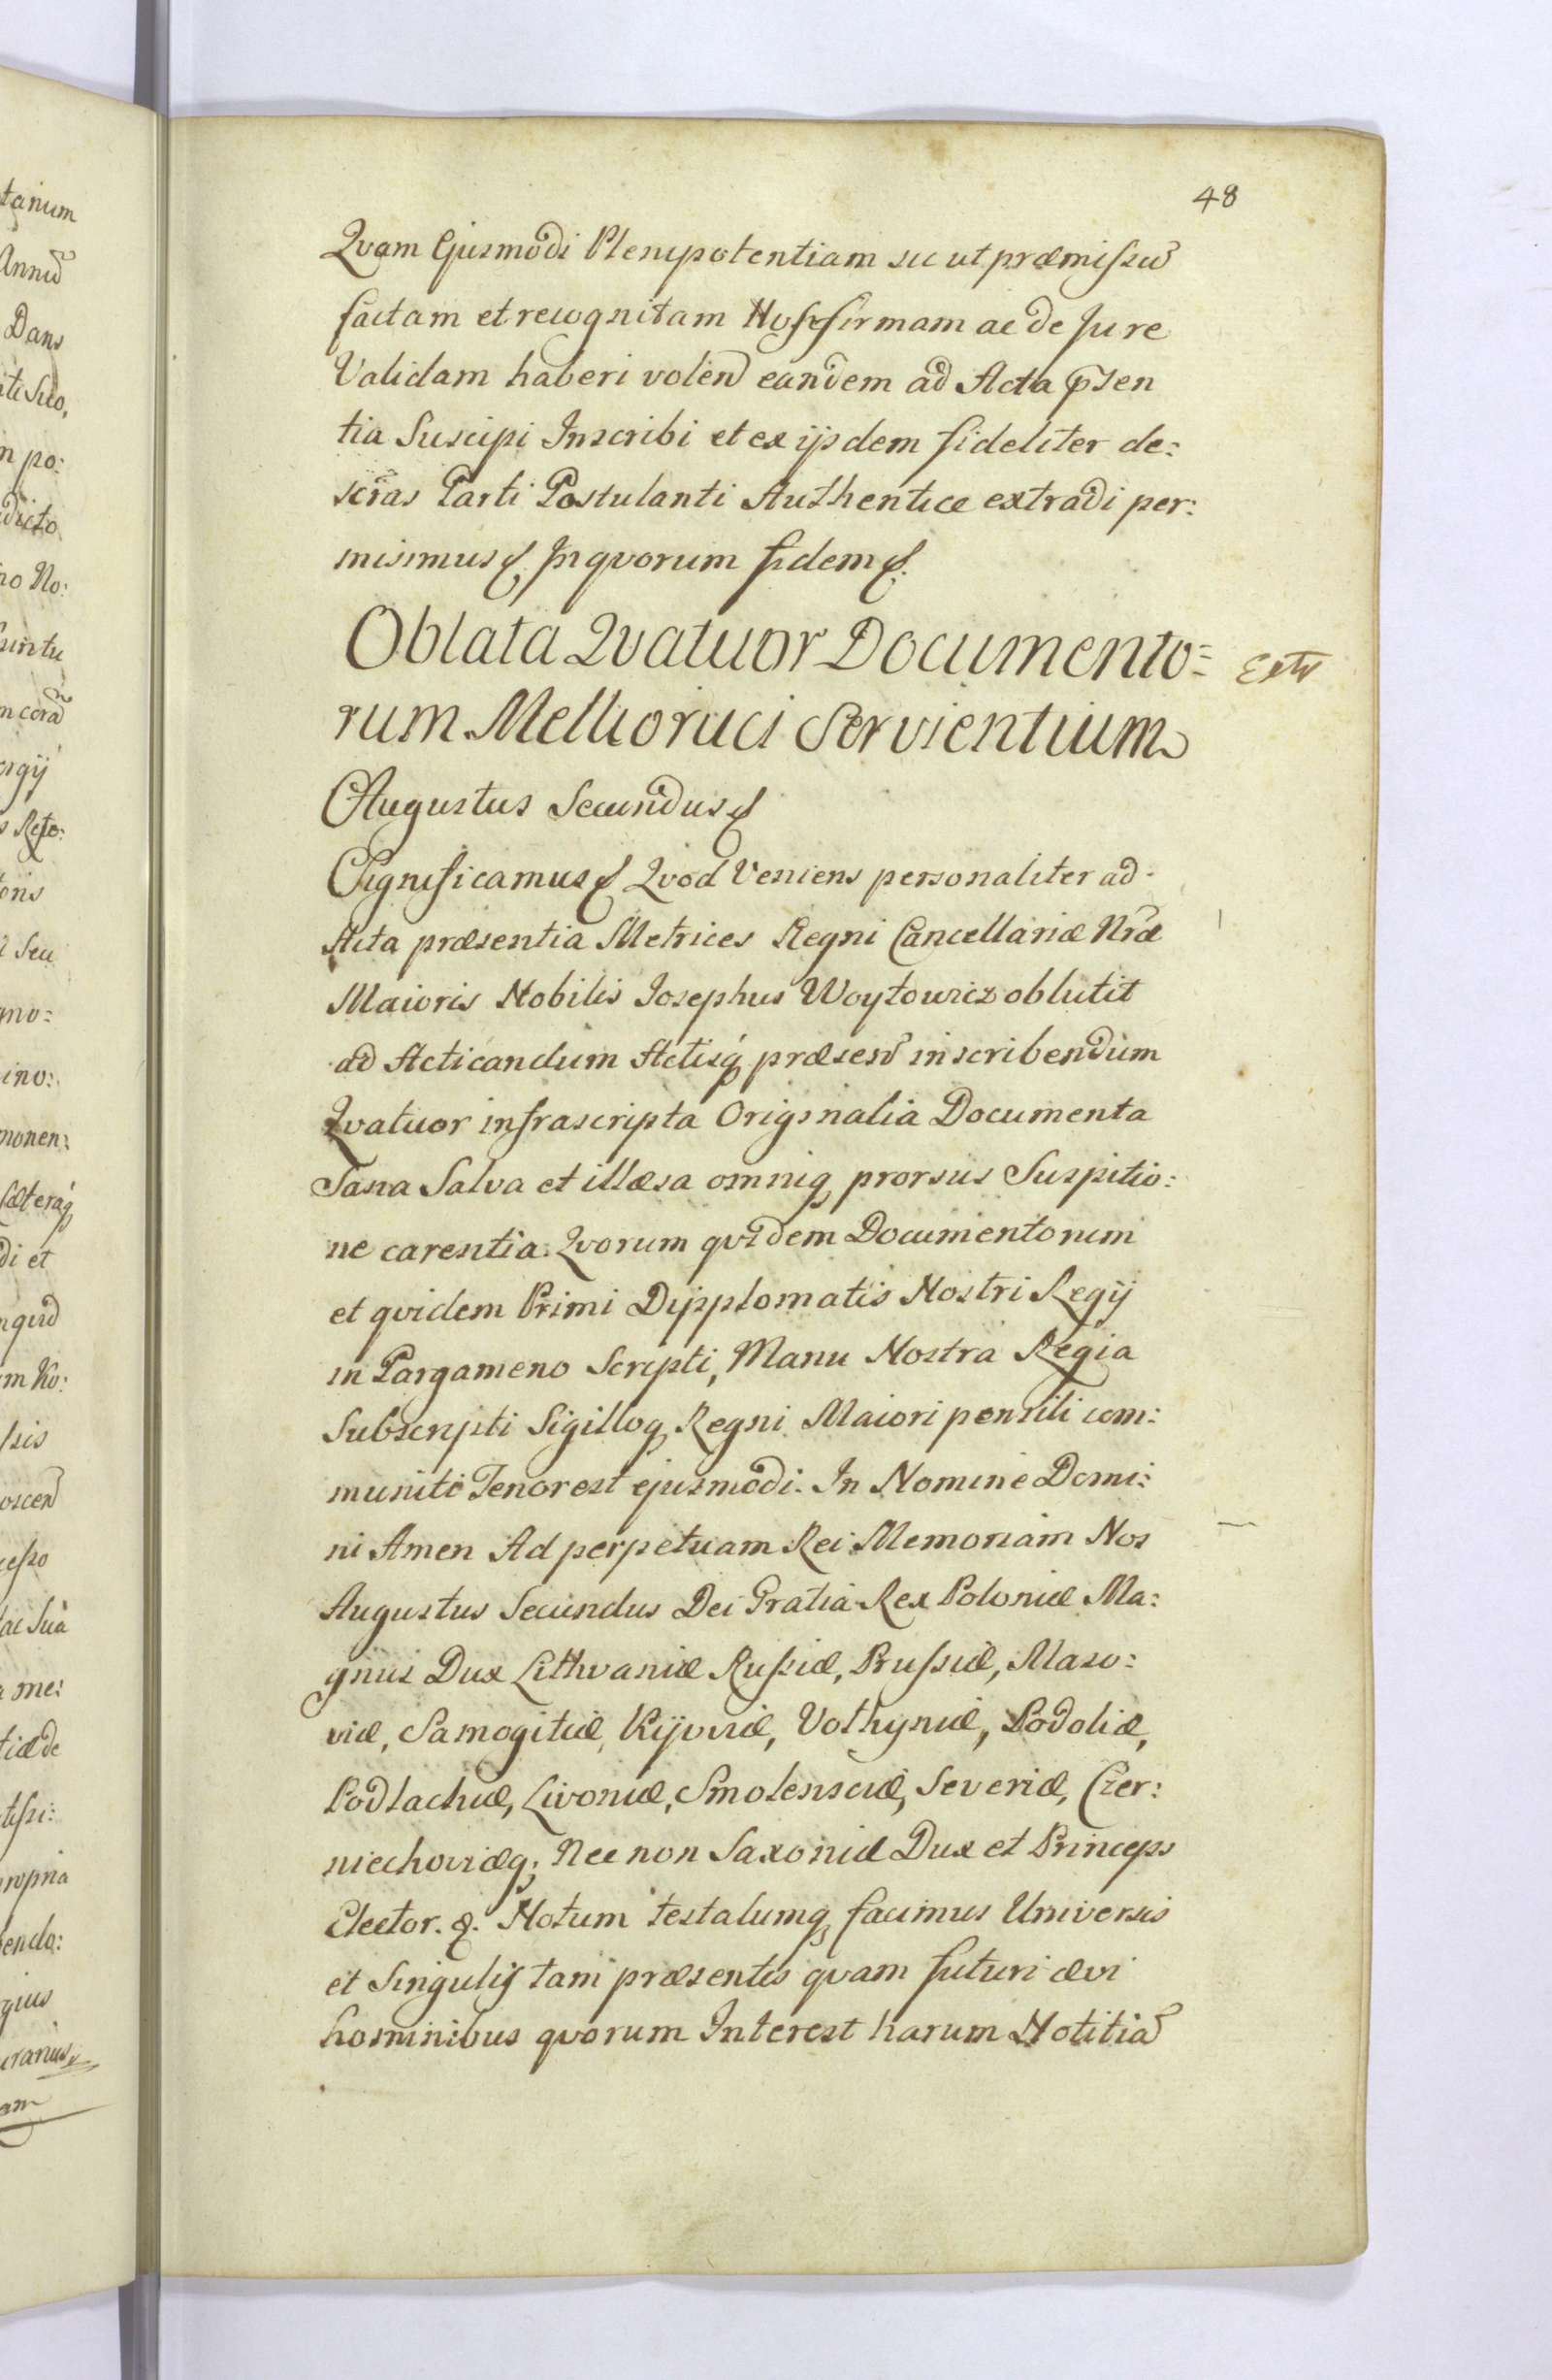 48
Qvam Ejusmodi Plenipotentiam sic ut præmissũ
factam et recognitam Nos firmam ac de Jure
Validam haberi voleñ eandem ad Acta p̃sen
tia Suscipi Inscribi et ex ijsdem fideliter de:
scr̃as Parti Postulanti Authentice extradi per:
misimus &. In qvorum fidem &.
Oblata Qvatuor Documento=
rum Mellioruci Servientium
Extr
Augustus Secundus &
Significamus & Qvod Veniens personaliter ad
Acta præsentia Metrices Regni Cancellariæ Nr̃æ
Maioris Nobilis Josephus Woytowicz obtulit
ad Acticandum Actisq́ præseñ inscribendum
Qvatuor infrascripta Originalia Documenta
Sana Salva et illæsa omniq prorsus Suspitio:
ne carentia. Qvorum qvidem Documentorum
et qvidem Primi Dipplomatis Nostri Regij
in Pargameno Scripti, Manu Nostra Regia
Subscripti Sigilloq Regni Maiori pensili com:
muniti Tenor est ejusmodi. In Nomine Domi:
ni Amen Ad perpetuam Rei Memoriam Nos
Augustus Secundus Dei Gratia Rex Poloniæ Ma:
gnus Dux Lithvaniæ Russiæ, Prussiæ, Maso:
viæ, Samogitiæ, Kijoviæ, Volhyniæ, Podoliæ,
Podlachiæ, Livoniæ, Smolensciæ, Severiæ, Czer:
niechoviæq; Nec non Saxoniæ Dux et Princeps
Elector. &. Notum testatumq facimus Universis
et Singulis tam præsentis qvam futuri ævi
hominibus qvorum Interest harum Notitiã